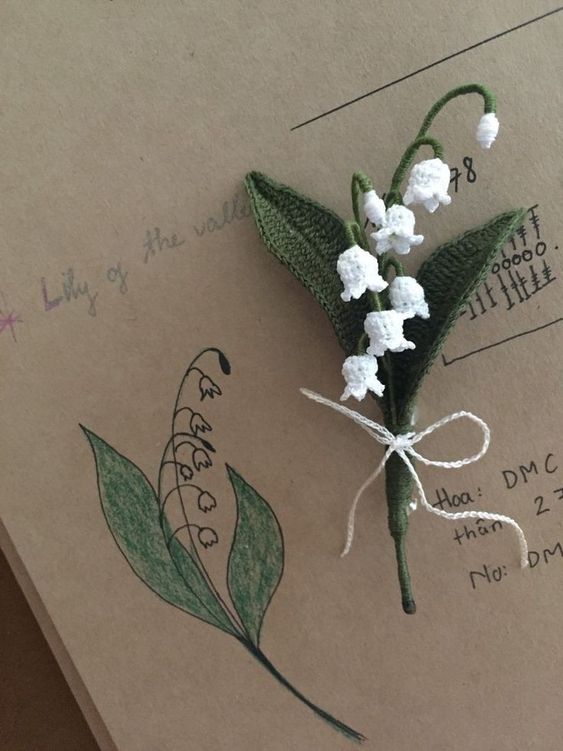 78
Lily of the valle
Hoa: DMC
thân 27
Nơ: DM